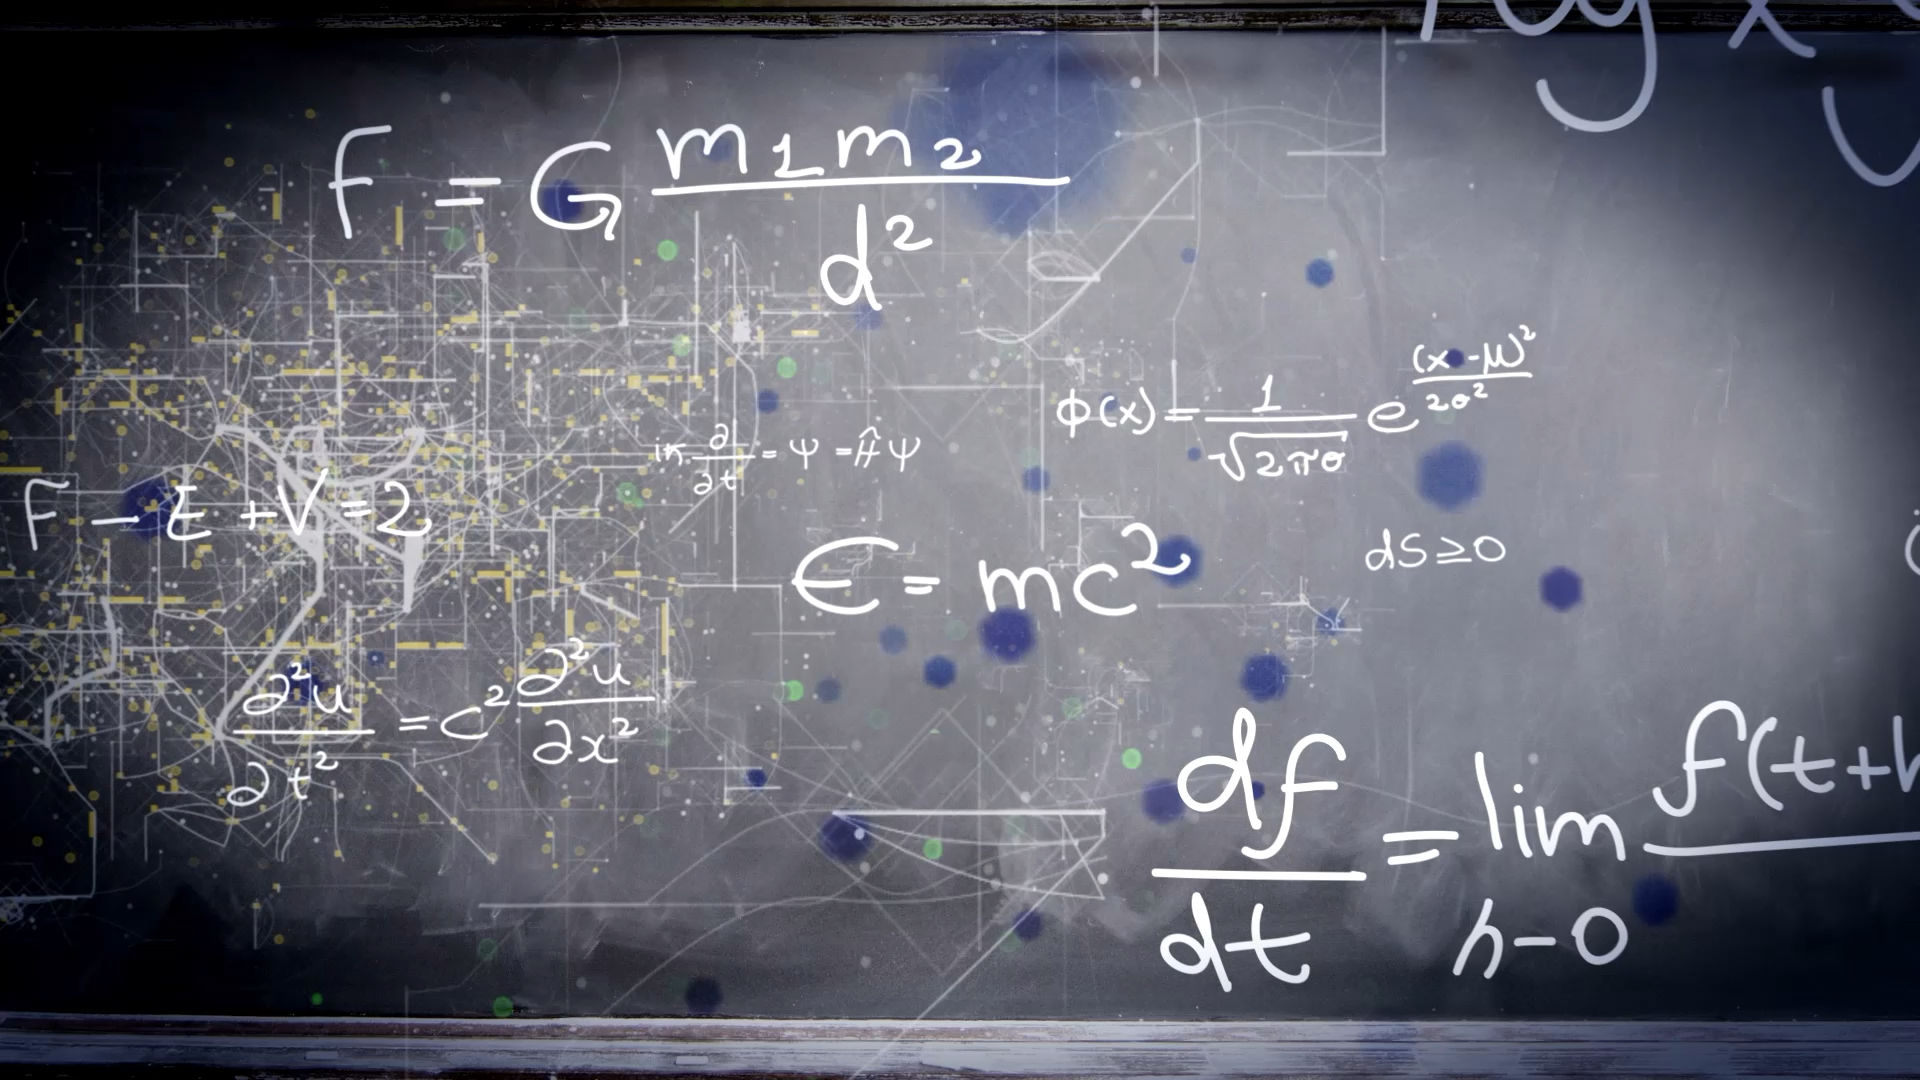 F = G m₁m₂ / d²
ϕ(x) = 1 / √2πσ e^((x-μ)² / 2σ²)
iℏ ∂ / ∂t = Ψ = ĤΨ
F - E + V = 2
dS ≥ 0
E = mc²
∂²u / ∂t² = c² ∂²u / ∂x²
df / dt = lim h-0 f(t+h